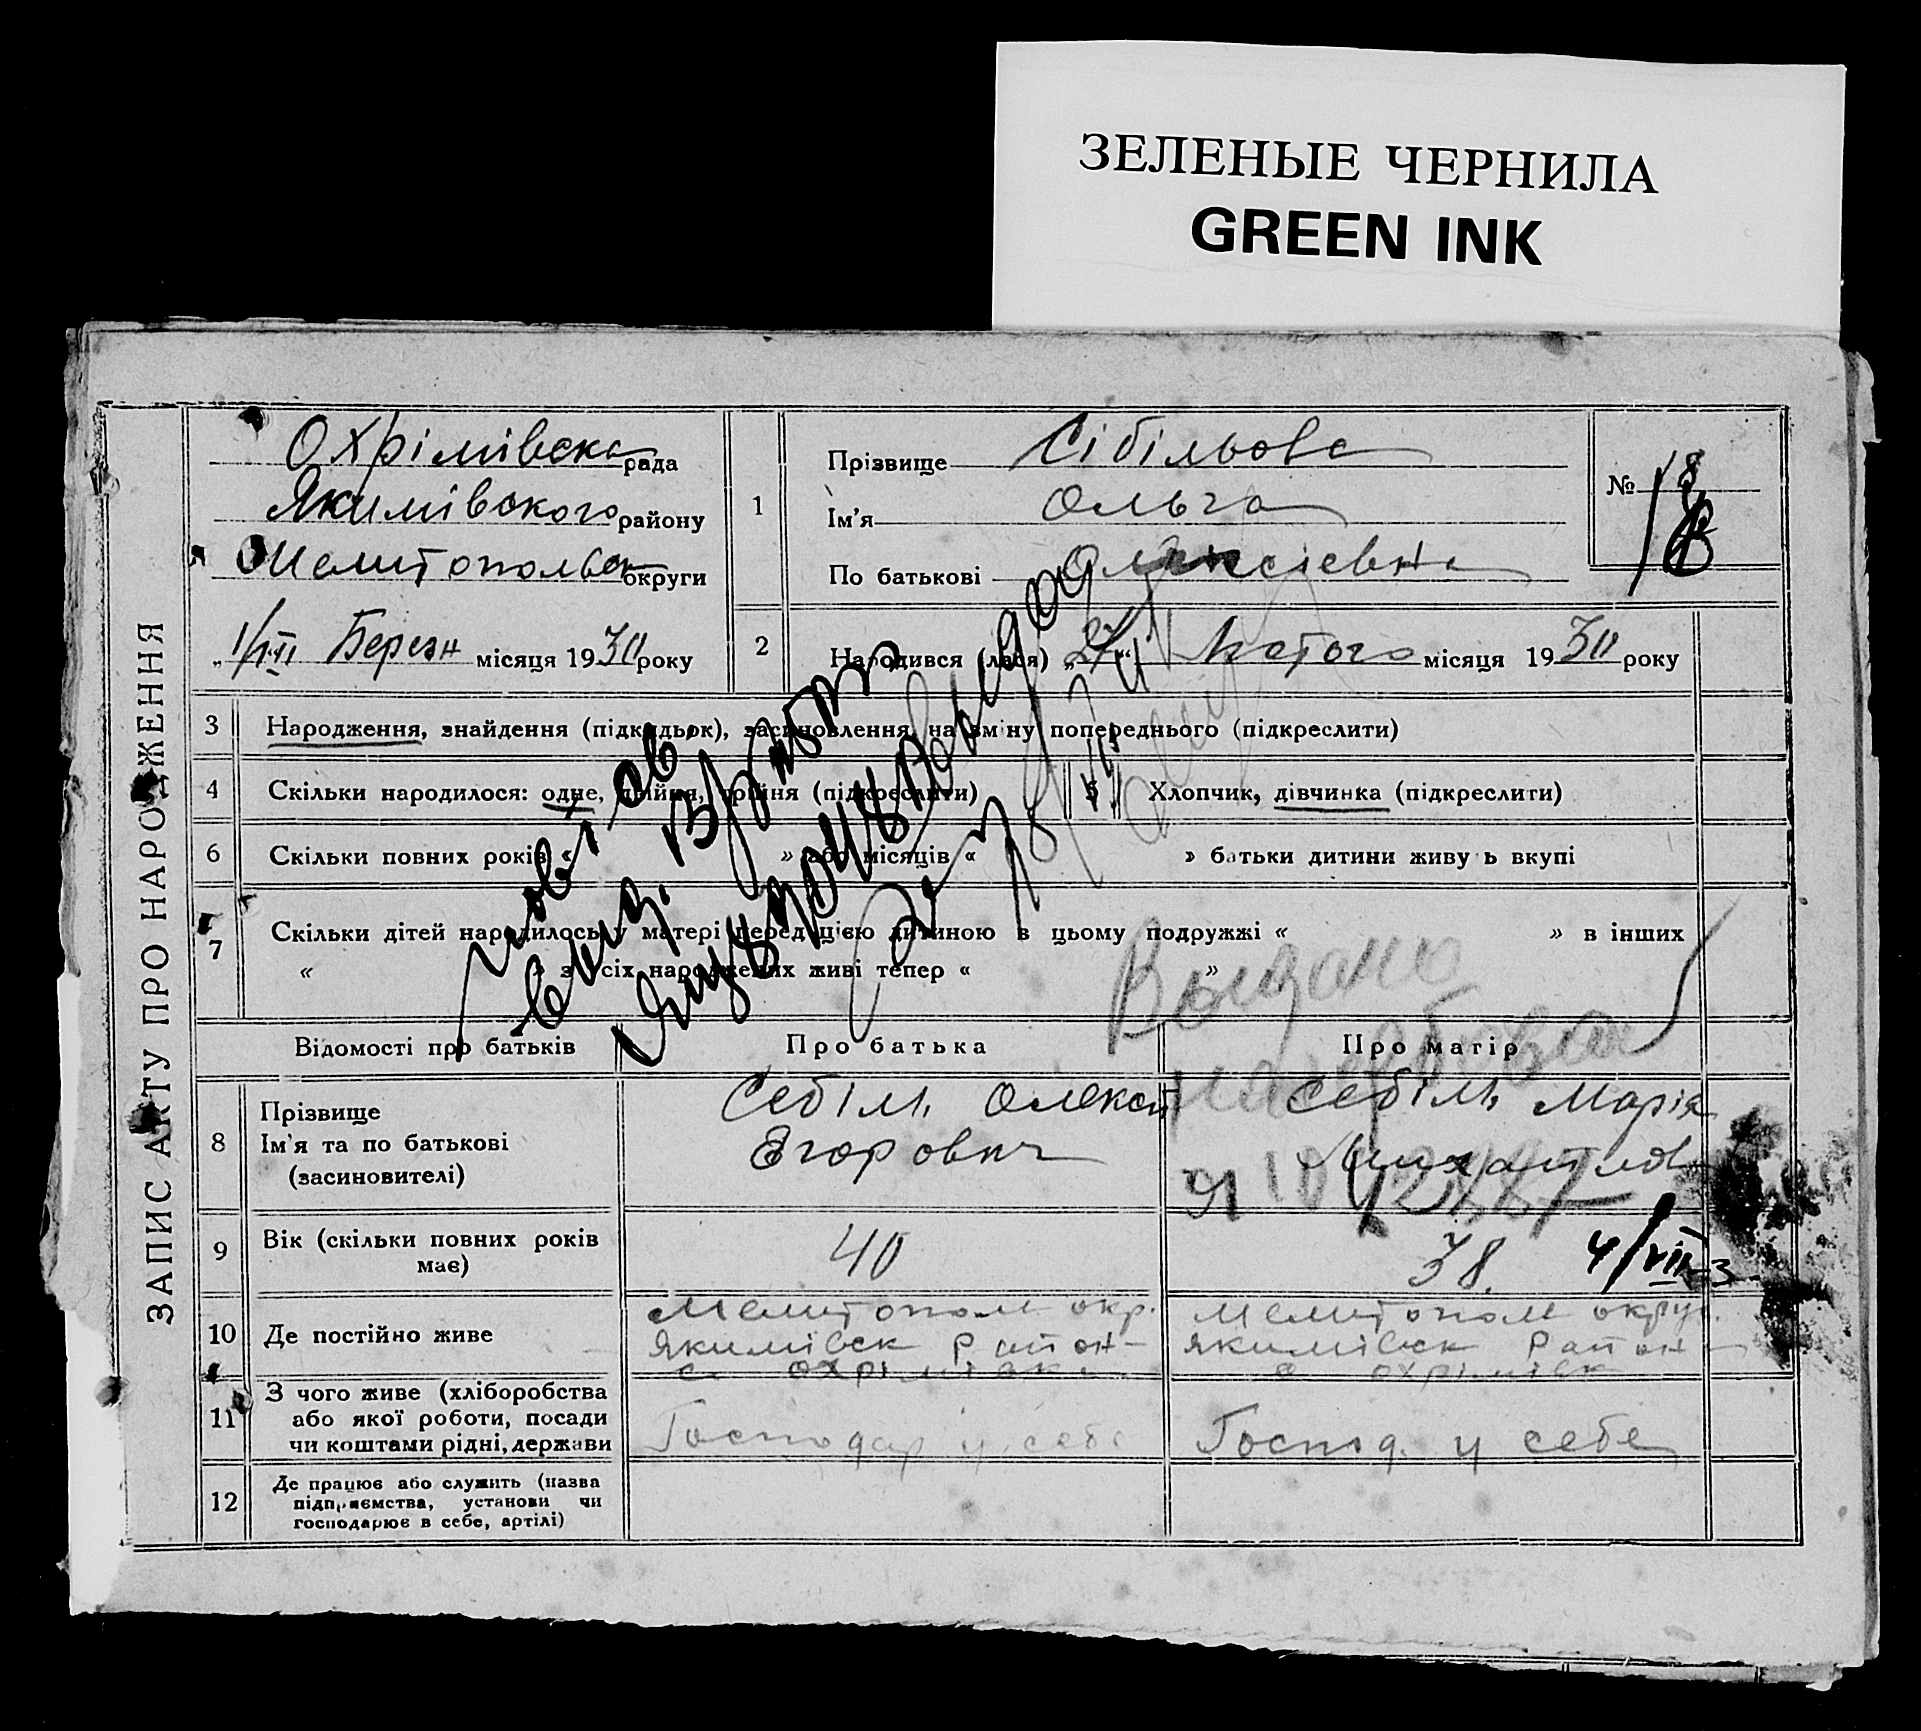 ЗЕЛЕНЫЕ ЧЕРНИЛА
GREEN INK
ЗАПИС АКТУ ПРО НАРОДЖЕННЯ
Охрімівска рада
Якимівского району
Мелитопольск округи
1/III Березн місяця 1930 року
1
Прізвище Сібільова
Ім'я Ольга
По батькові Олексіевна
№ 18
2
Народився (лася) „27“ Лютого місяця 1930 року
3 Народження, знайдення (підкидьок), засиновлення, на зміну попереднього (підкреслити)
4 Скільки народилося: одне, двійня, трійня (підкреслити)
5 Хлопчик, дівчинка (підкреслити)
6 Скільки повних років « » або місяців « » батьки дитини живуть вкупі
7 Скільки дітей народилось у матері перед цією дитиною в цьому подружжі « » в інших
« » з усіх народжених живі тепер « »
Выдано
Відомості про батьків
Про батька
Про матір
8 Прізвище
Ім'я та по батькові
(засиновителі)
Себіль Олексій
Егорович
Себіль Марія
9 Вік (скільки повних років
має)
40
38.
4/VII-3
10 Де постійно живе
Мелитопол окр.
Якимівск Район
с Охрімівка
Мелитопол округ.
Якимівск Район
с Охрімівк
11 З чого живе (хліборобства
або якої роботи, посади
чи коштами рідні, держави
Господар у себе
Господ. у себе
12 Де працює або служить (назва
підприємства, установи чи
господарює в себе, артілі)